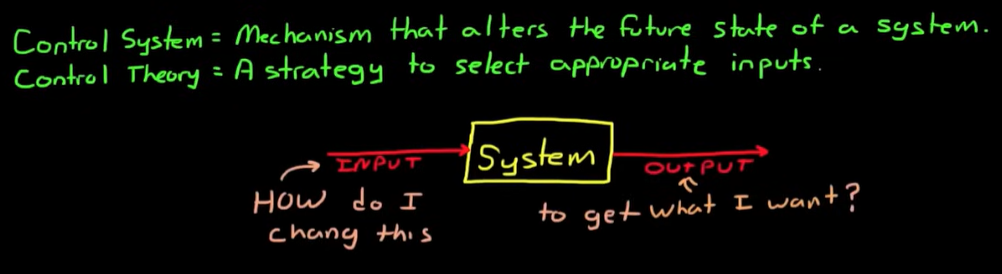 Control System = Mechanism that alters the future state of a system.
Control Theory = A strategy to select appropriate inputs.
INPUT
System
OUTPUT
HOW do I
chang this
to get what I want?